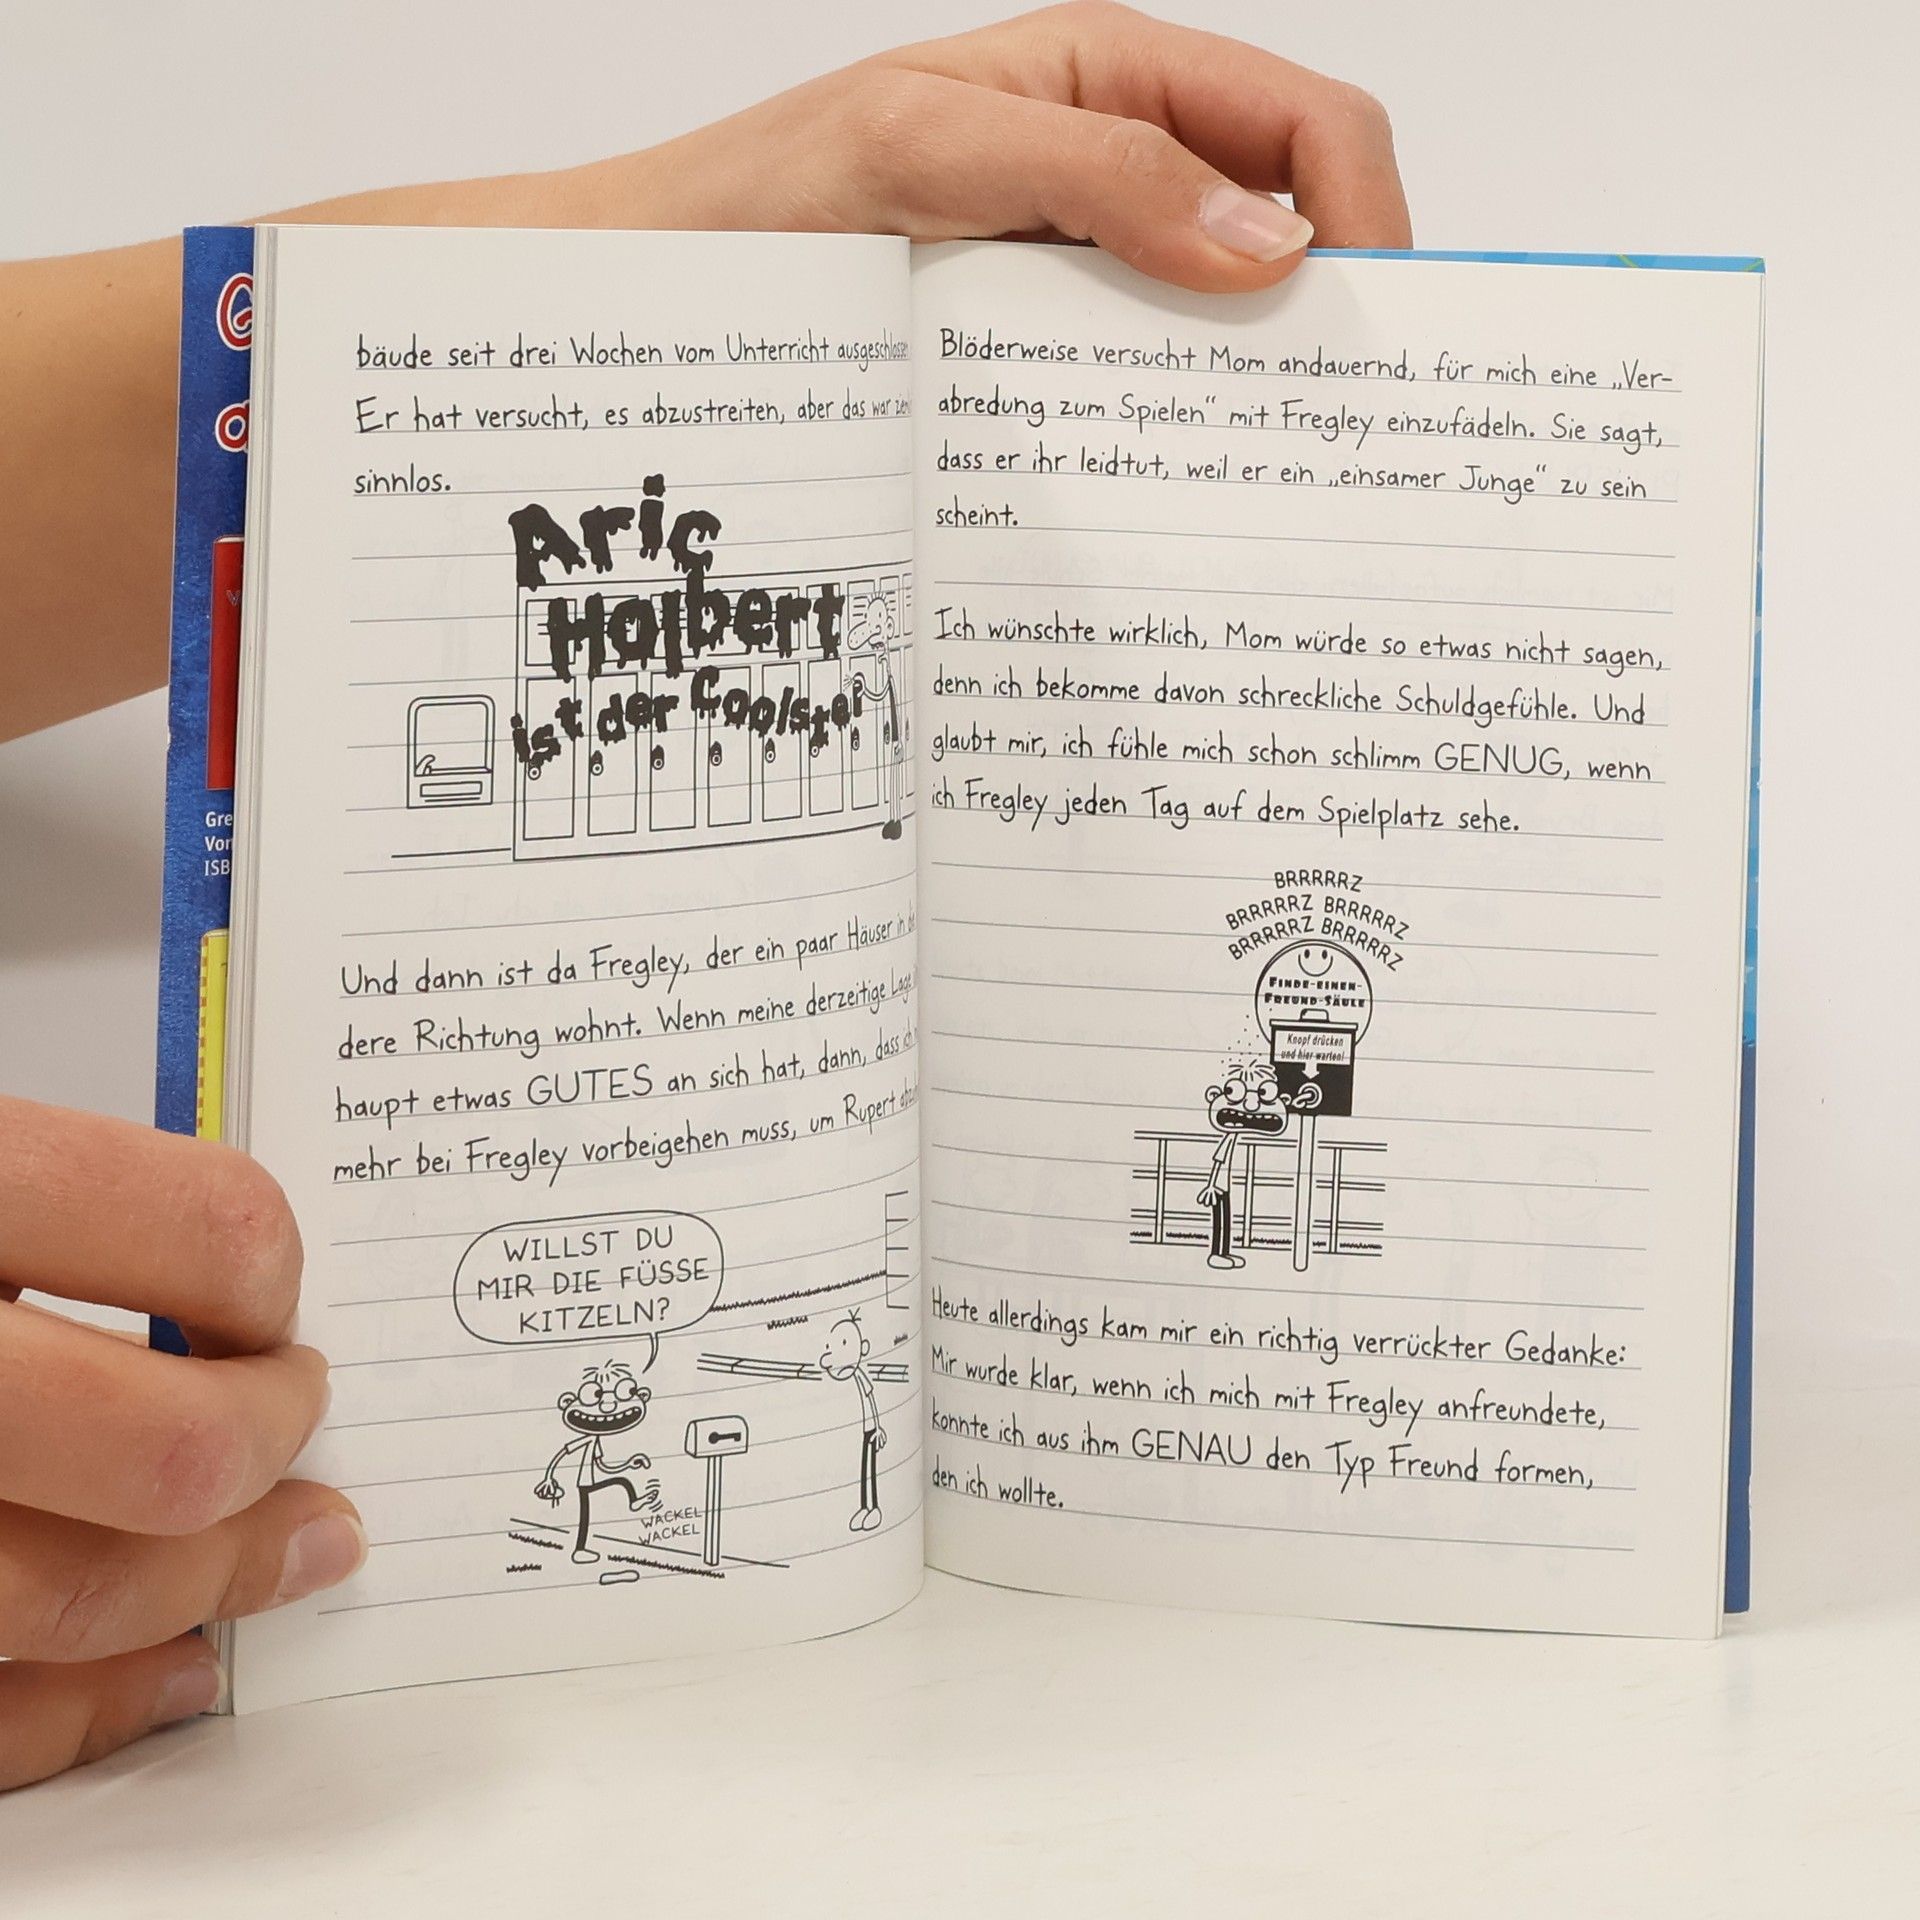 Gre
Vor
ISB
bäude seit drei Wochen vom Unterricht ausgeschlossen
Er hat versucht, es abzustreiten, aber das war
sinnlos.
Aric
Holbert
ist der Coolste!
Und dann ist da Fregley, der ein paar Häuser in
dere Richtung wohnt. Wenn meine derzeitige Lage
haupt etwas GUTES an sich hat, dann, dass ich
mehr bei Fregley vorbeigehen muss, um Rupert
WILLST DU
MIR DIE FÜSSE
KITZELN?
WACKEL
WACKEL
Blöderweise versucht Mom andauernd, für mich eine „Ver-
abredung zum Spielen“ mit Fregley einzufädeln. Sie sagt,
dass er ihr leidtut, weil er ein „einsamer Junge“ zu sein
scheint.
Ich wünschte wirklich, Mom würde so etwas nicht sagen,
denn ich bekomme davon schreckliche Schuldgefühle. Und
glaubt mir, ich fühle mich schon schlimm GENUG, wenn
ich Fregley jeden Tag auf dem Spielplatz sehe.
BRRRRRZ
BRRRRRZ BRRRRRZ
BRRRRRZ BRRRRRZ
FINDE-EINEN-
FREUND-SÄULE
Knopf drücken
und hier warten!
Heute allerdings kam mir ein richtig verrückter Gedanke:
Mir wurde klar, wenn ich mich mit Fregley anfreundete,
konnte ich aus ihm GENAU den Typ Freund formen,
den ich wollte.